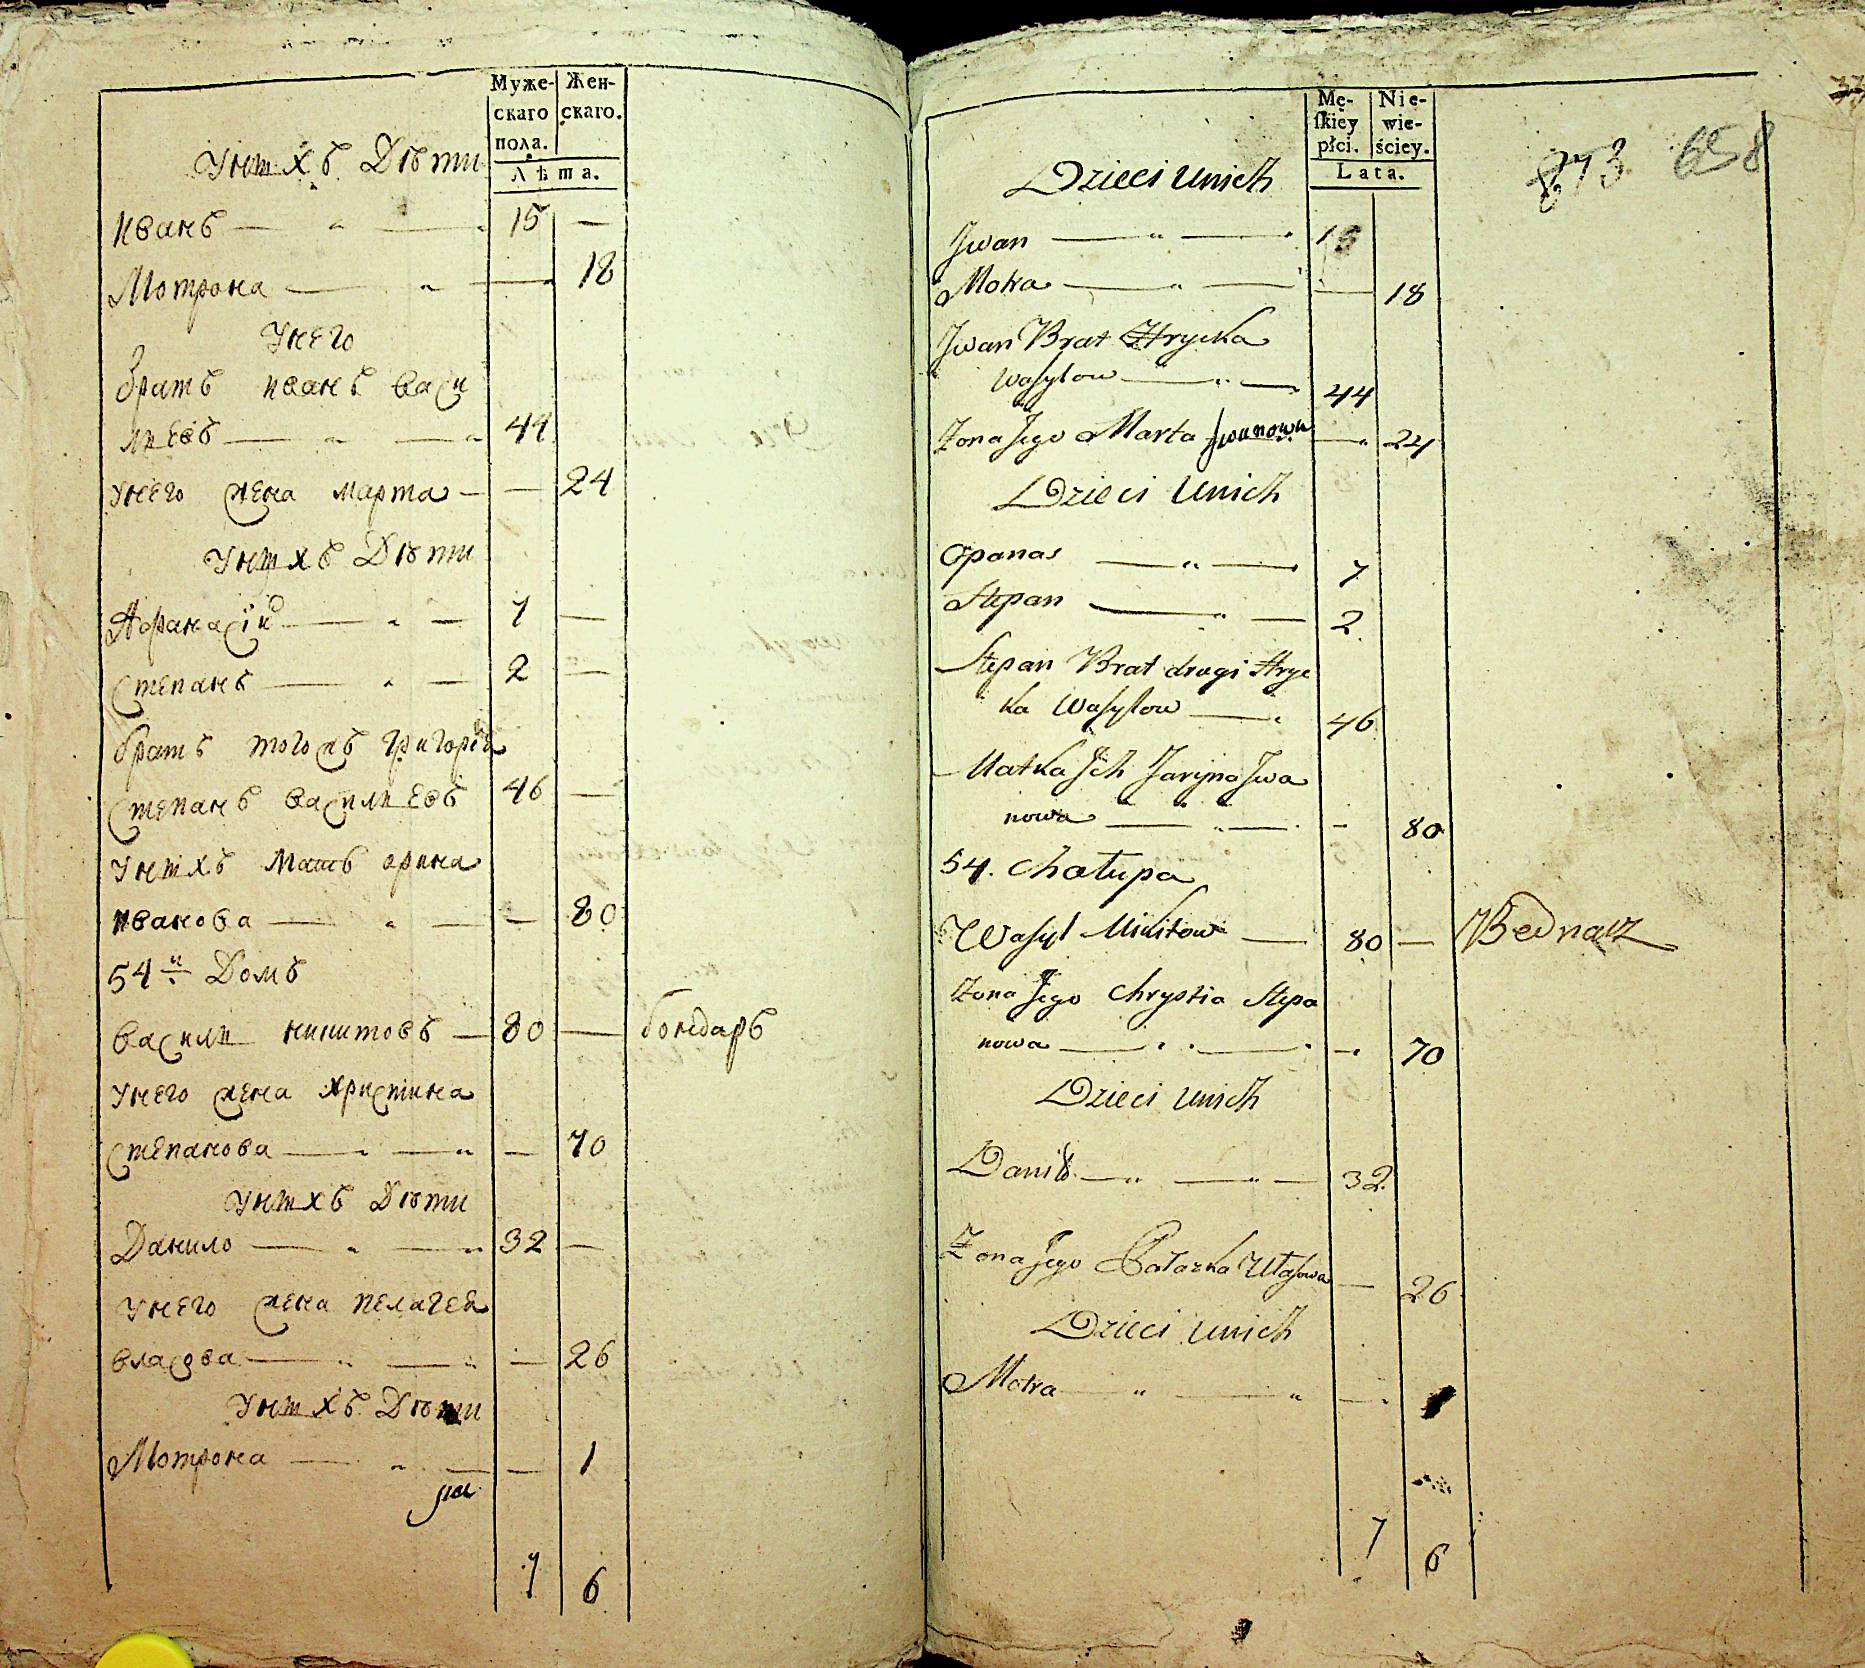 Муже-
скаго
пола.
Жен-
скаго.
Лѣта.
Унихъ Дѣти
иванъ — „ — 15 —
Мотрона — „ — 18
Унего
братъ иванъ васи
лиевъ — „ — 44
унего жена марта — — 24
Унихъ Дѣти
Афанасій — „ — 7 —
Степанъ — „ — 2 —
братъ тогожъ григорія
Степанъ василиевъ 46 —
унихъ мать орина
иванова — „ — — 80
54й Домъ
васили никитовъ — 80 — бондарь
унего жена христина
Степанова — „ — „ — 70
унихъ Дѣти
Данило — „ — „ 32 —
унего жена пелагея
власова — „ — „ — 26
унихъ Дѣти
Мотрона — „ — — 1
7 6
Mę-
ſkiey
płci.
Nie-
wie-
ściey.
Lata.
873 658
Dzieci Unich
Jwan — „ — „ 15
Motra — „ — — 18
Jwan Brat Hrycka
Wasylow — „ — 44
Zona Jego Marta Jwanowa — „ 24
Dzieci Unich
Opanas — „ — „ 7
Stepan — „ — 2
Stepan Brat drugi Hryc
ka Wasylow — „ 46
Matka Jch Jaryna Jwa
nowa — „ — - 80
54. Chałupa
Wasyl Mikitow — 80 — Bednarz
Zona Jego Chrystia Stepa
nowa — „ — „ — 70
Dzieci Unich
Daniło — „ — „ — 32
Zona Jego Pałazka Własowa — 26
Dzieci Unich
Motra — „ — „ — 1
7 6